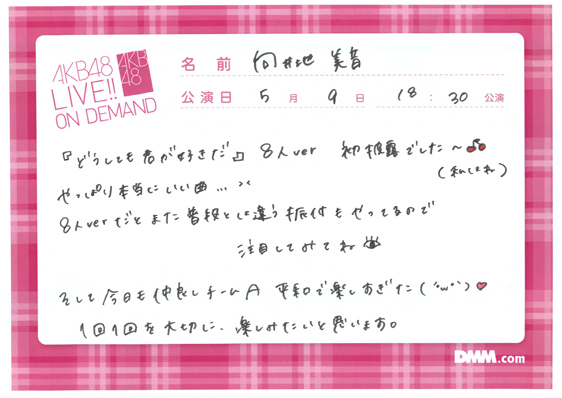 AKB48
LIVE!!
ON DEMAND
AKB
48
名前 向井地 美音
公演日 5月 9日 18:30 公演
『どうしても君が好きだ』 8人ver 初披露でした〜
(私はね)
やっぱり本当にいい曲...><
8人verだとまた普段とは違う振付もやってるので
注目してみてね
そして今日も仲良しチームA 平和で楽しすぎた(´ω`)
1回1回を大切に、楽しみたいと思います。
DMM.com